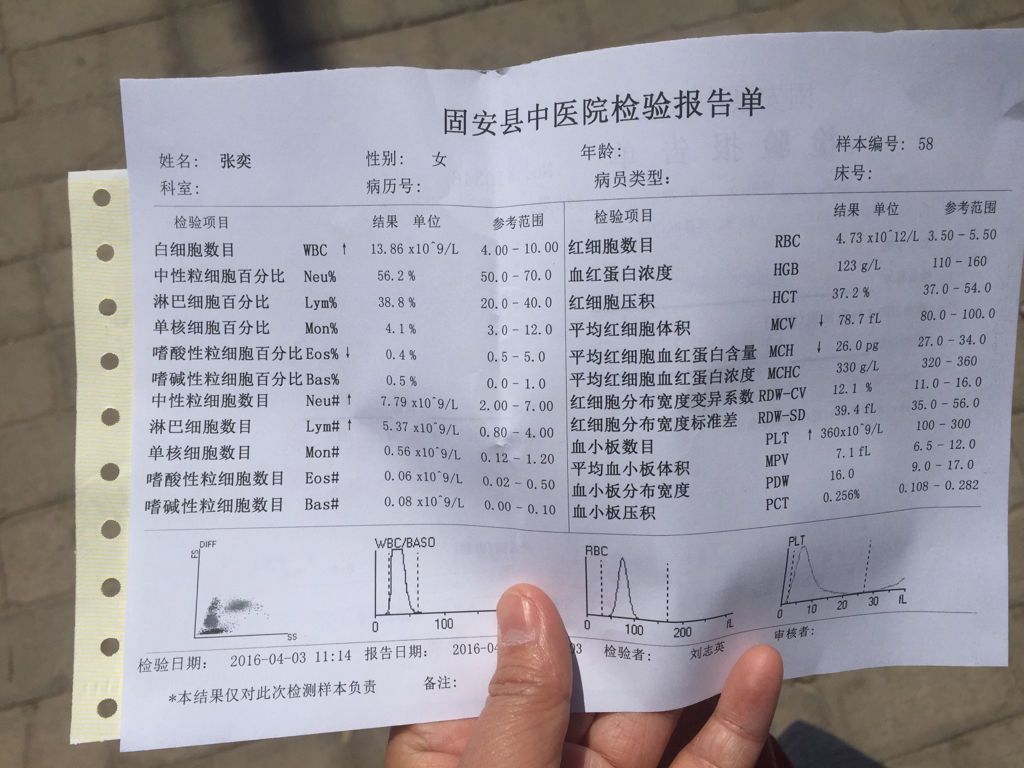 固安县中医院检验报告单
姓名: 张奕 性别: 女 年龄: 样本编号: 58
科室: 病历号: 病员类型: 床号:
检验项目 结果 单位 参考范围
白细胞数目 WBC ↑ 13.86 x10^9/L 4.00 - 10.00
中性粒细胞百分比 Neu% 56.2 % 50.0 - 70.0
淋巴细胞百分比 Lym% 38.8 % 20.0 - 40.0
单核细胞百分比 Mon% 4.1 % 3.0 - 12.0
嗜酸性粒细胞百分比 Eos% ↓ 0.4 % 0.5 - 5.0
嗜碱性粒细胞百分比 Bas% 0.5 % 0.0 - 1.0
中性粒细胞数目 Neu# ↑ 7.79 x10^9/L 2.00 - 7.00
淋巴细胞数目 Lym# ↑ 5.37 x10^9/L 0.80 - 4.00
单核细胞数目 Mon# 0.56 x10^9/L 0.12 - 1.20
嗜酸性粒细胞数目 Eos# 0.06 x10^9/L 0.02 - 0.50
嗜碱性粒细胞数目 Bas# 0.08 x10^9/L 0.00 - 0.10
检验项目 结果 单位 参考范围
红细胞数目 RBC 4.73 x10^12/L 3.50 - 5.50
血红蛋白浓度 HGB 123 g/L 110 - 160
红细胞压积 HCT 37.2 % 37.0 - 54.0
平均红细胞体积 MCV ↓ 78.7 fL 80.0 - 100.0
平均红细胞血红蛋白含量 MCH ↓ 26.0 pg 27.0 - 34.0
平均红细胞血红蛋白浓度 MCHC 330 g/L 320 - 360
红细胞分布宽度变异系数 RDW-CV 12.1 % 11.0 - 16.0
红细胞分布宽度标准差 RDW-SD 39.4 fL 35.0 - 56.0
血小板数目 PLT ↑ 360x10^9/L 100 - 300
平均血小板体积 MPV 7.1 fL 6.5 - 12.0
血小板分布宽度 PDW 16.0 9.0 - 17.0
血小板压积 PCT 0.256% 0.108 - 0.282
DIFF
FS
SS
WBC/BASO
0 100
RBC
0 100 200 fL
PLT
0 10 20 30 fL
检验日期: 2016-04-03 11:14 报告日期: 2016-04 03 检验者: 刘志英 审核者:
*本结果仅对此次检测样本负责 备注: